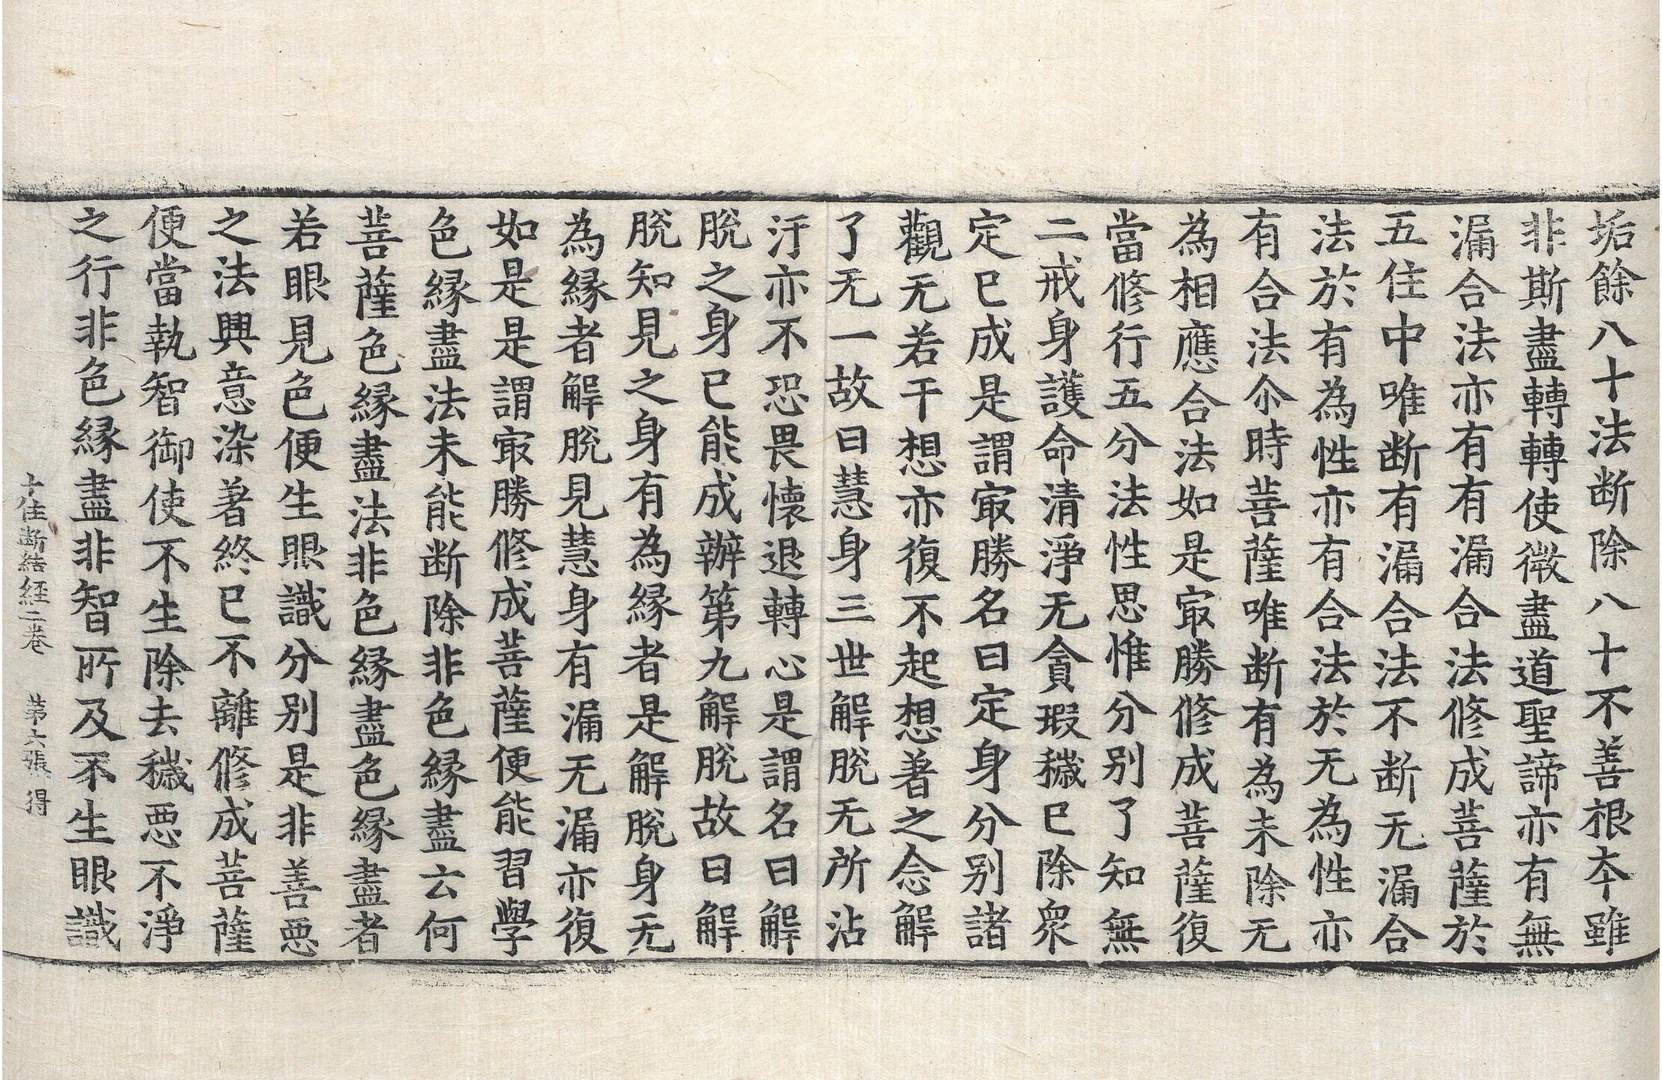 垢餘八十法断除八十不善根夲雖
非斯盡轉轉使微盡道聖諦亦有無
漏合法亦有有漏合法修成菩薩於
五住中唯断有漏合法不断无漏合
法於有為性亦有合法於无為性亦
有合法尒時菩薩唯断有為未除无
為相應合法如是㝡勝修成菩薩復
當修行五分法性思惟分别了知無
二戒身護命清淨无貪瑕穢已除衆
定已成是謂㝡勝名曰定身分别諸
觀无若干想亦復不起想著之念解
了无一故曰慧身三世解脫无所沾
汙亦不恐畏懷退轉心是謂名曰解
脫之身已能成辦第九解脫故曰解
脫知見之身有為緣者是解脫身无
為緣者解脫見慧身有漏无漏亦復
如是是謂㝡勝修成菩薩便能習學
色緣盡法未能断除非色緣盡云何
菩薩色緣盡法非色緣盡色緣盡者
若眼見色便生眼識分别是非善惡
之法興意染著終已不離修成菩薩
便當執智御使不生除去穢惡不淨
之行非色緣盡非智所及不生眼識
十住断結經二卷 第六張 得